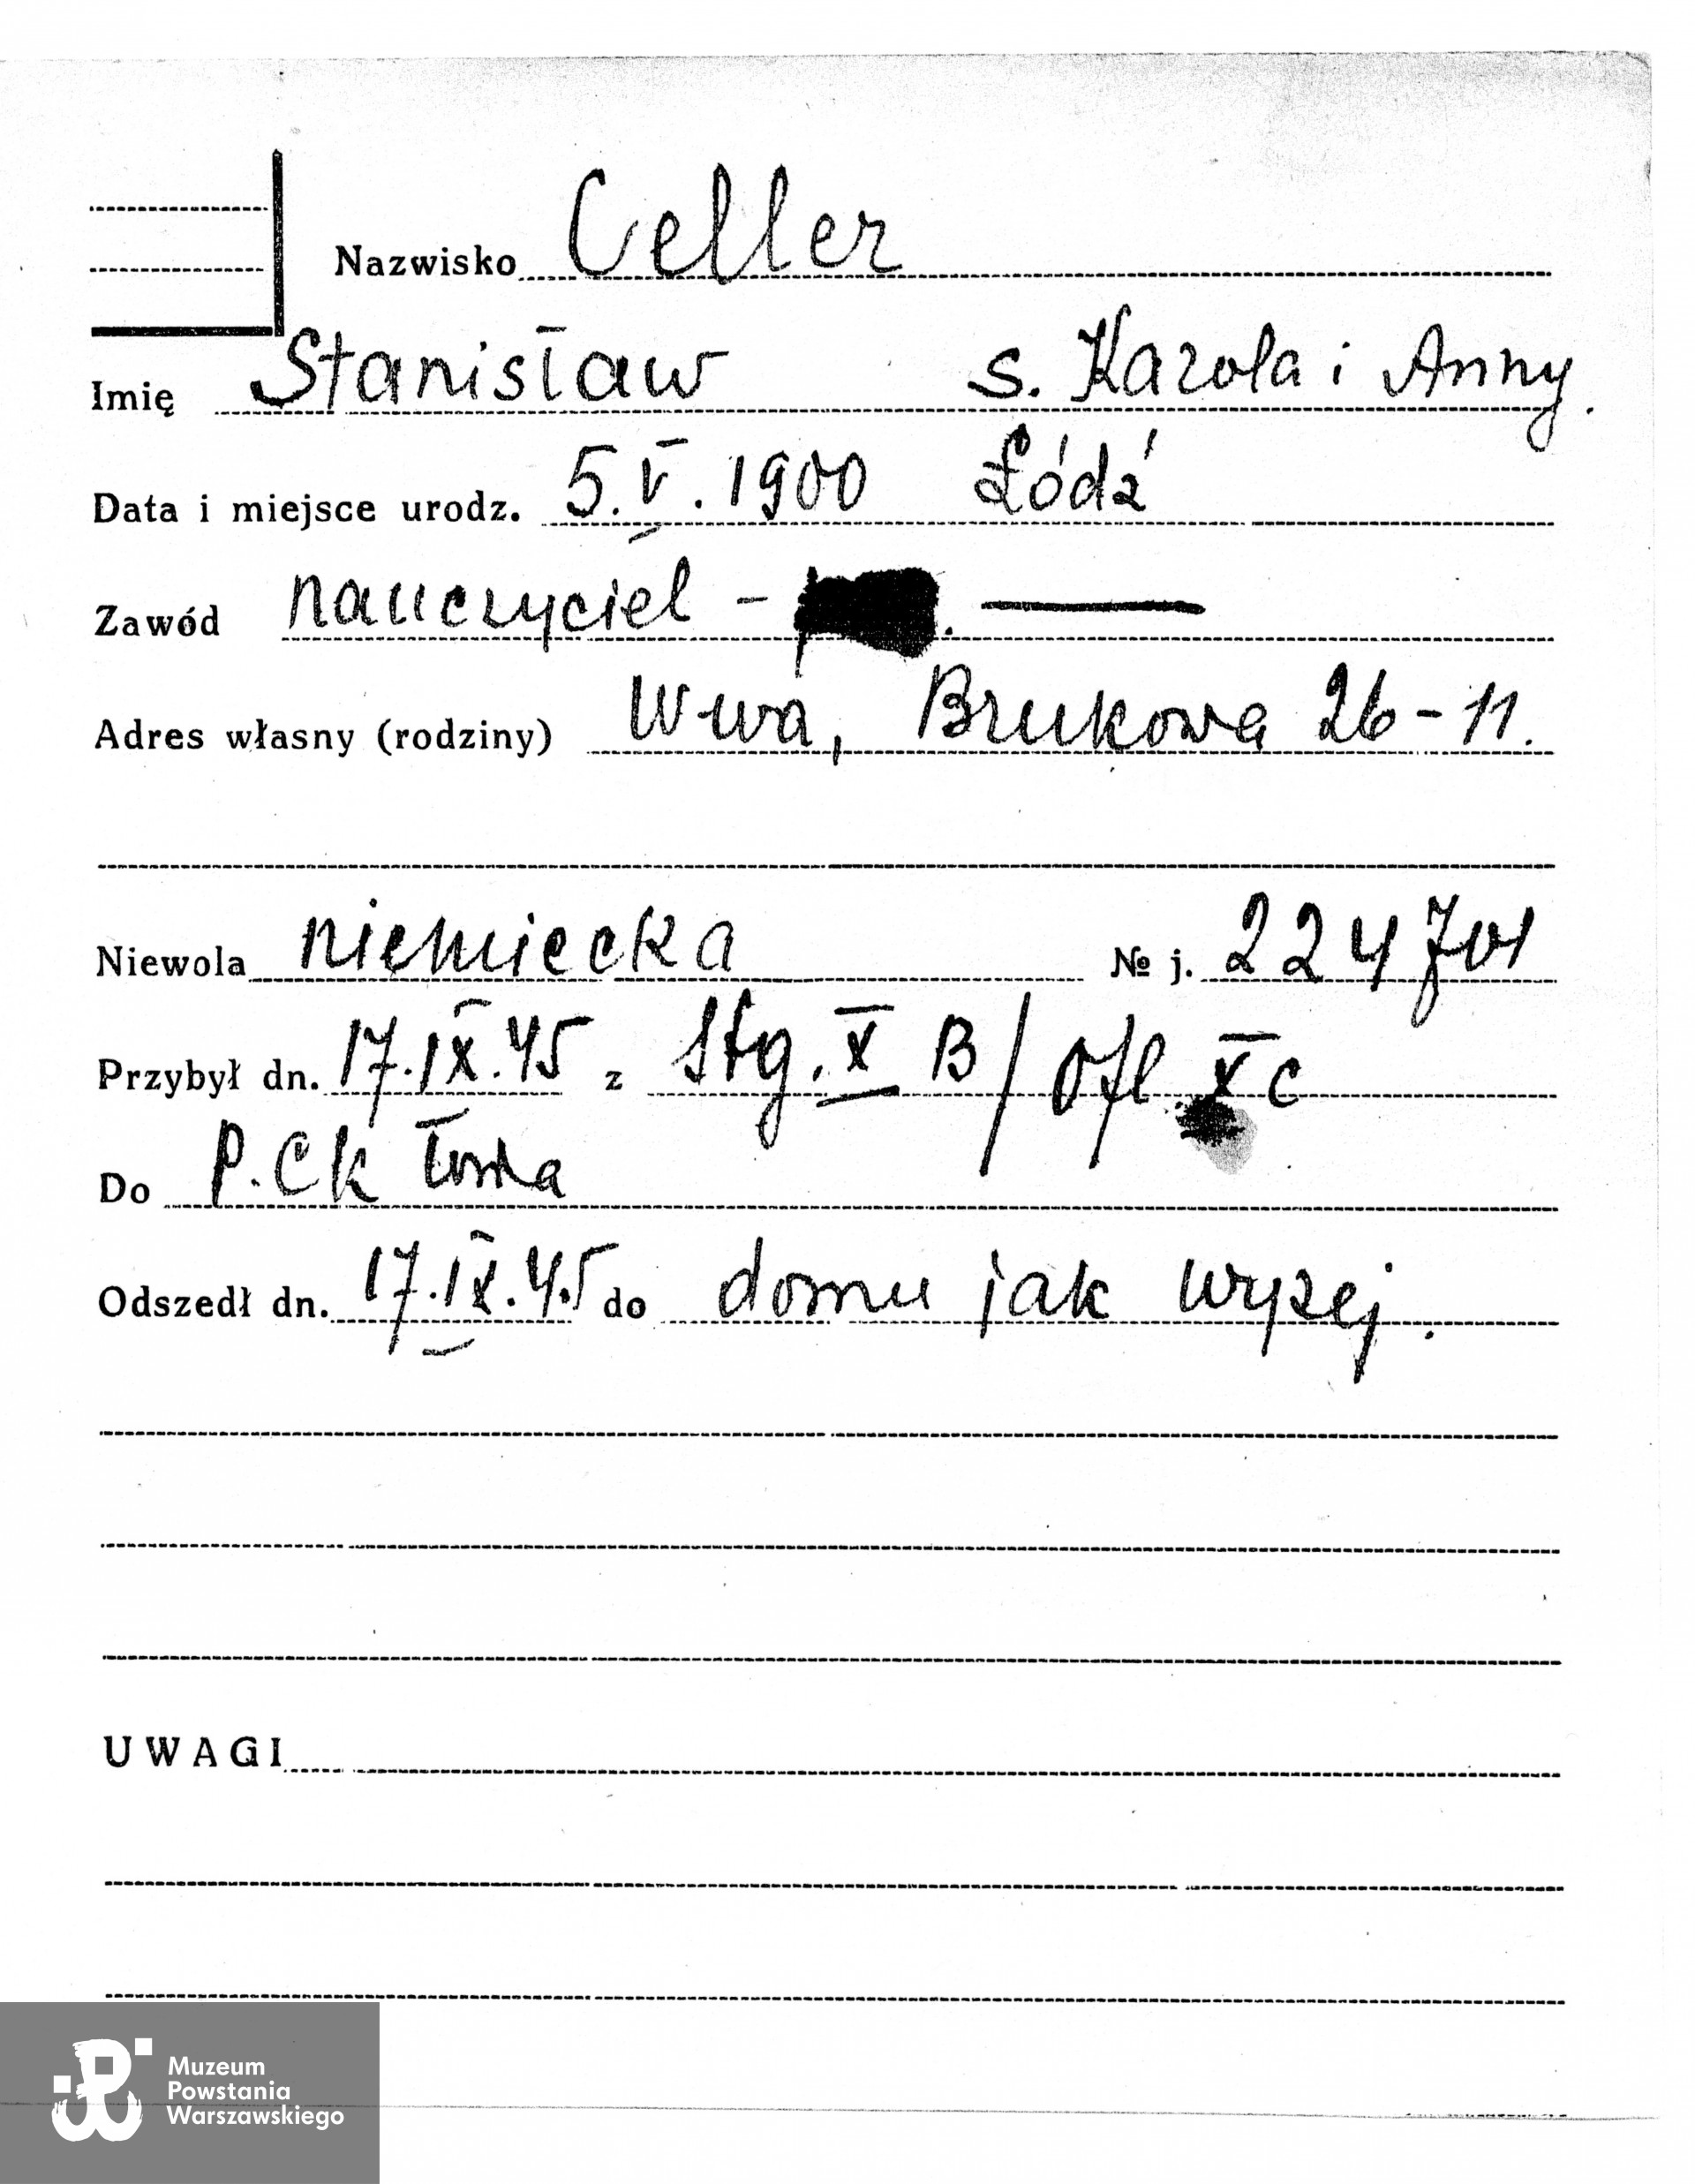 Nazwisko Celler
Imię Stanisław s. Karola i Anny.
Data i miejsce urodz. 5.V.1900 Łódź
Zawód nauczyciel - —
Adres własny (rodziny) W-wa, Brukowa 26-11.
Niewola niemiecka № j. 224701
Przybył dn. 17.IX.45 z Stg. X B / Ofl. X C
Do P.CK
Odszedł dn. 17.IX.45 do domu jak wyżej.
UWAGI
Muzeum
Powstania
Warszawskiego